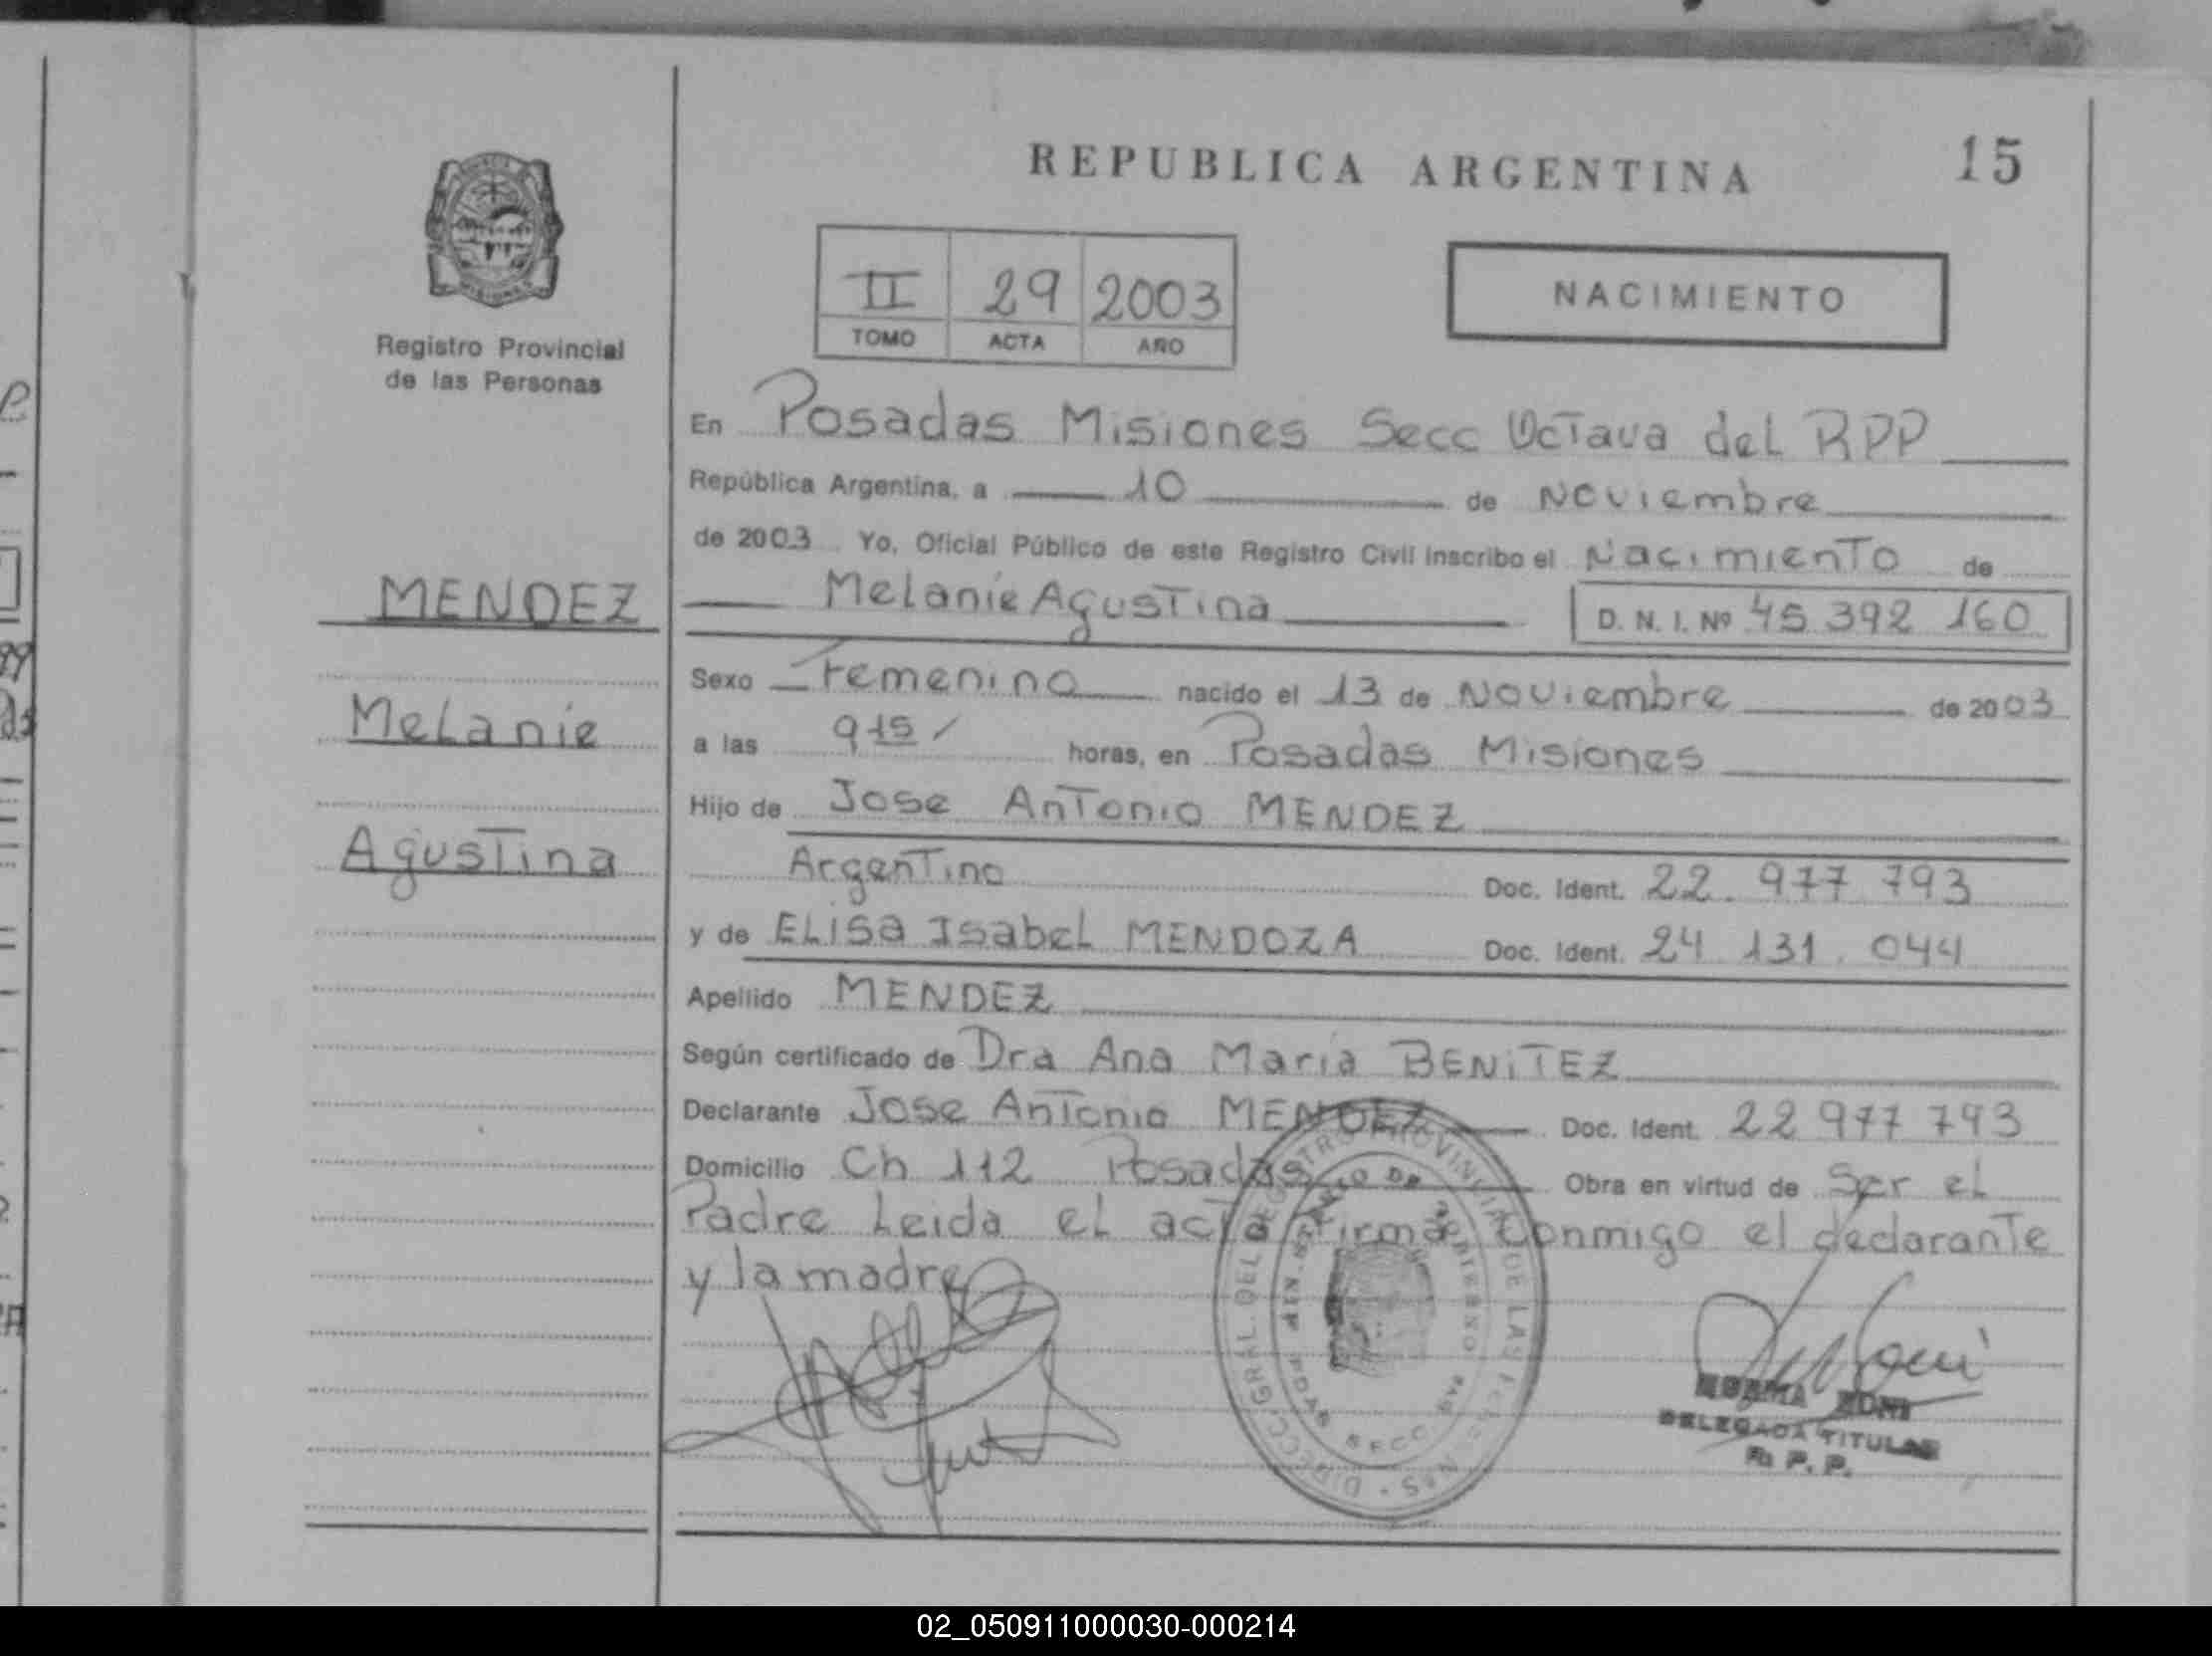 REPUBLICA ARGENTINA 15
Registro Provincial
de las Personas
II 29 2003
TOMO ACTA AÑO
NACIMIENTO
MENDEZ
Melanie
Agustina
En Posadas Misiones Secc Octava del RPP
República Argentina, a 10 de Noviembre
de 2003 Yo, Oficial Público de este Registro Civil inscribo el Nacimiento de
Melanie Agustina D. N. I. Nº 45 392 160
Sexo Femenino nacido el 13 de Noviembre de 2003
a las 9 15 / horas, en Posadas Misiones
Hijo de Jose Antonio MENDEZ
Argentino Doc. Ident. 22. 977 793
y de Elisa Isabel MENDOZA Doc. Ident. 24 131. 044
Apellido MENDEZ
Según certificado de Dra Ana Maria BENITEZ
Declarante Jose Antonio MENDEZ Doc. Ident. 22 977 793
Domicilio Ch 112 Posadas Obra en virtud de Ser el
Padre Leida el acta firma conmigo el declarante
y la madre
DIRECC. GRAL. DEL REGISTRO PROVINCIAL DE LAS
DE GOBIERNO
SECC
NORMA
DELEGADA TITULAR
R. P. P.
02_050911000030-000214